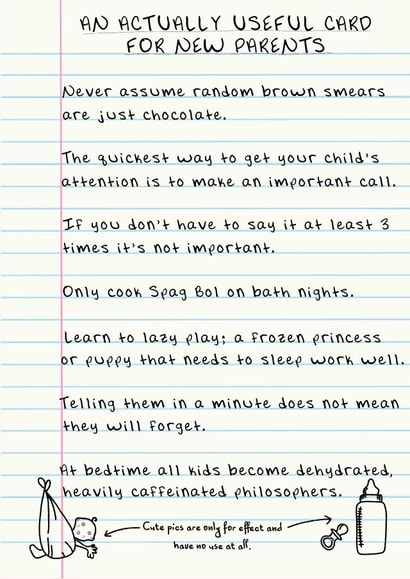 AN ACTUALLY USEFUL CARD
FOR NEW PARENTS
Never assume random brown smears
are just chocolate.
The quickest way to get your child's
attention is to make an important call.
If you don't have to say it at least 3
times it's not important.
Only cook Spag Bol on bath nights.
Learn to lazy play; a frozen princess
or puppy that needs to sleep work well.
Telling them in a minute does not mean
they will forget.
At bedtime all kids become dehydrated,
heavily caffeinated philosophers.
Cute pics are only for effect and
have no use at all.